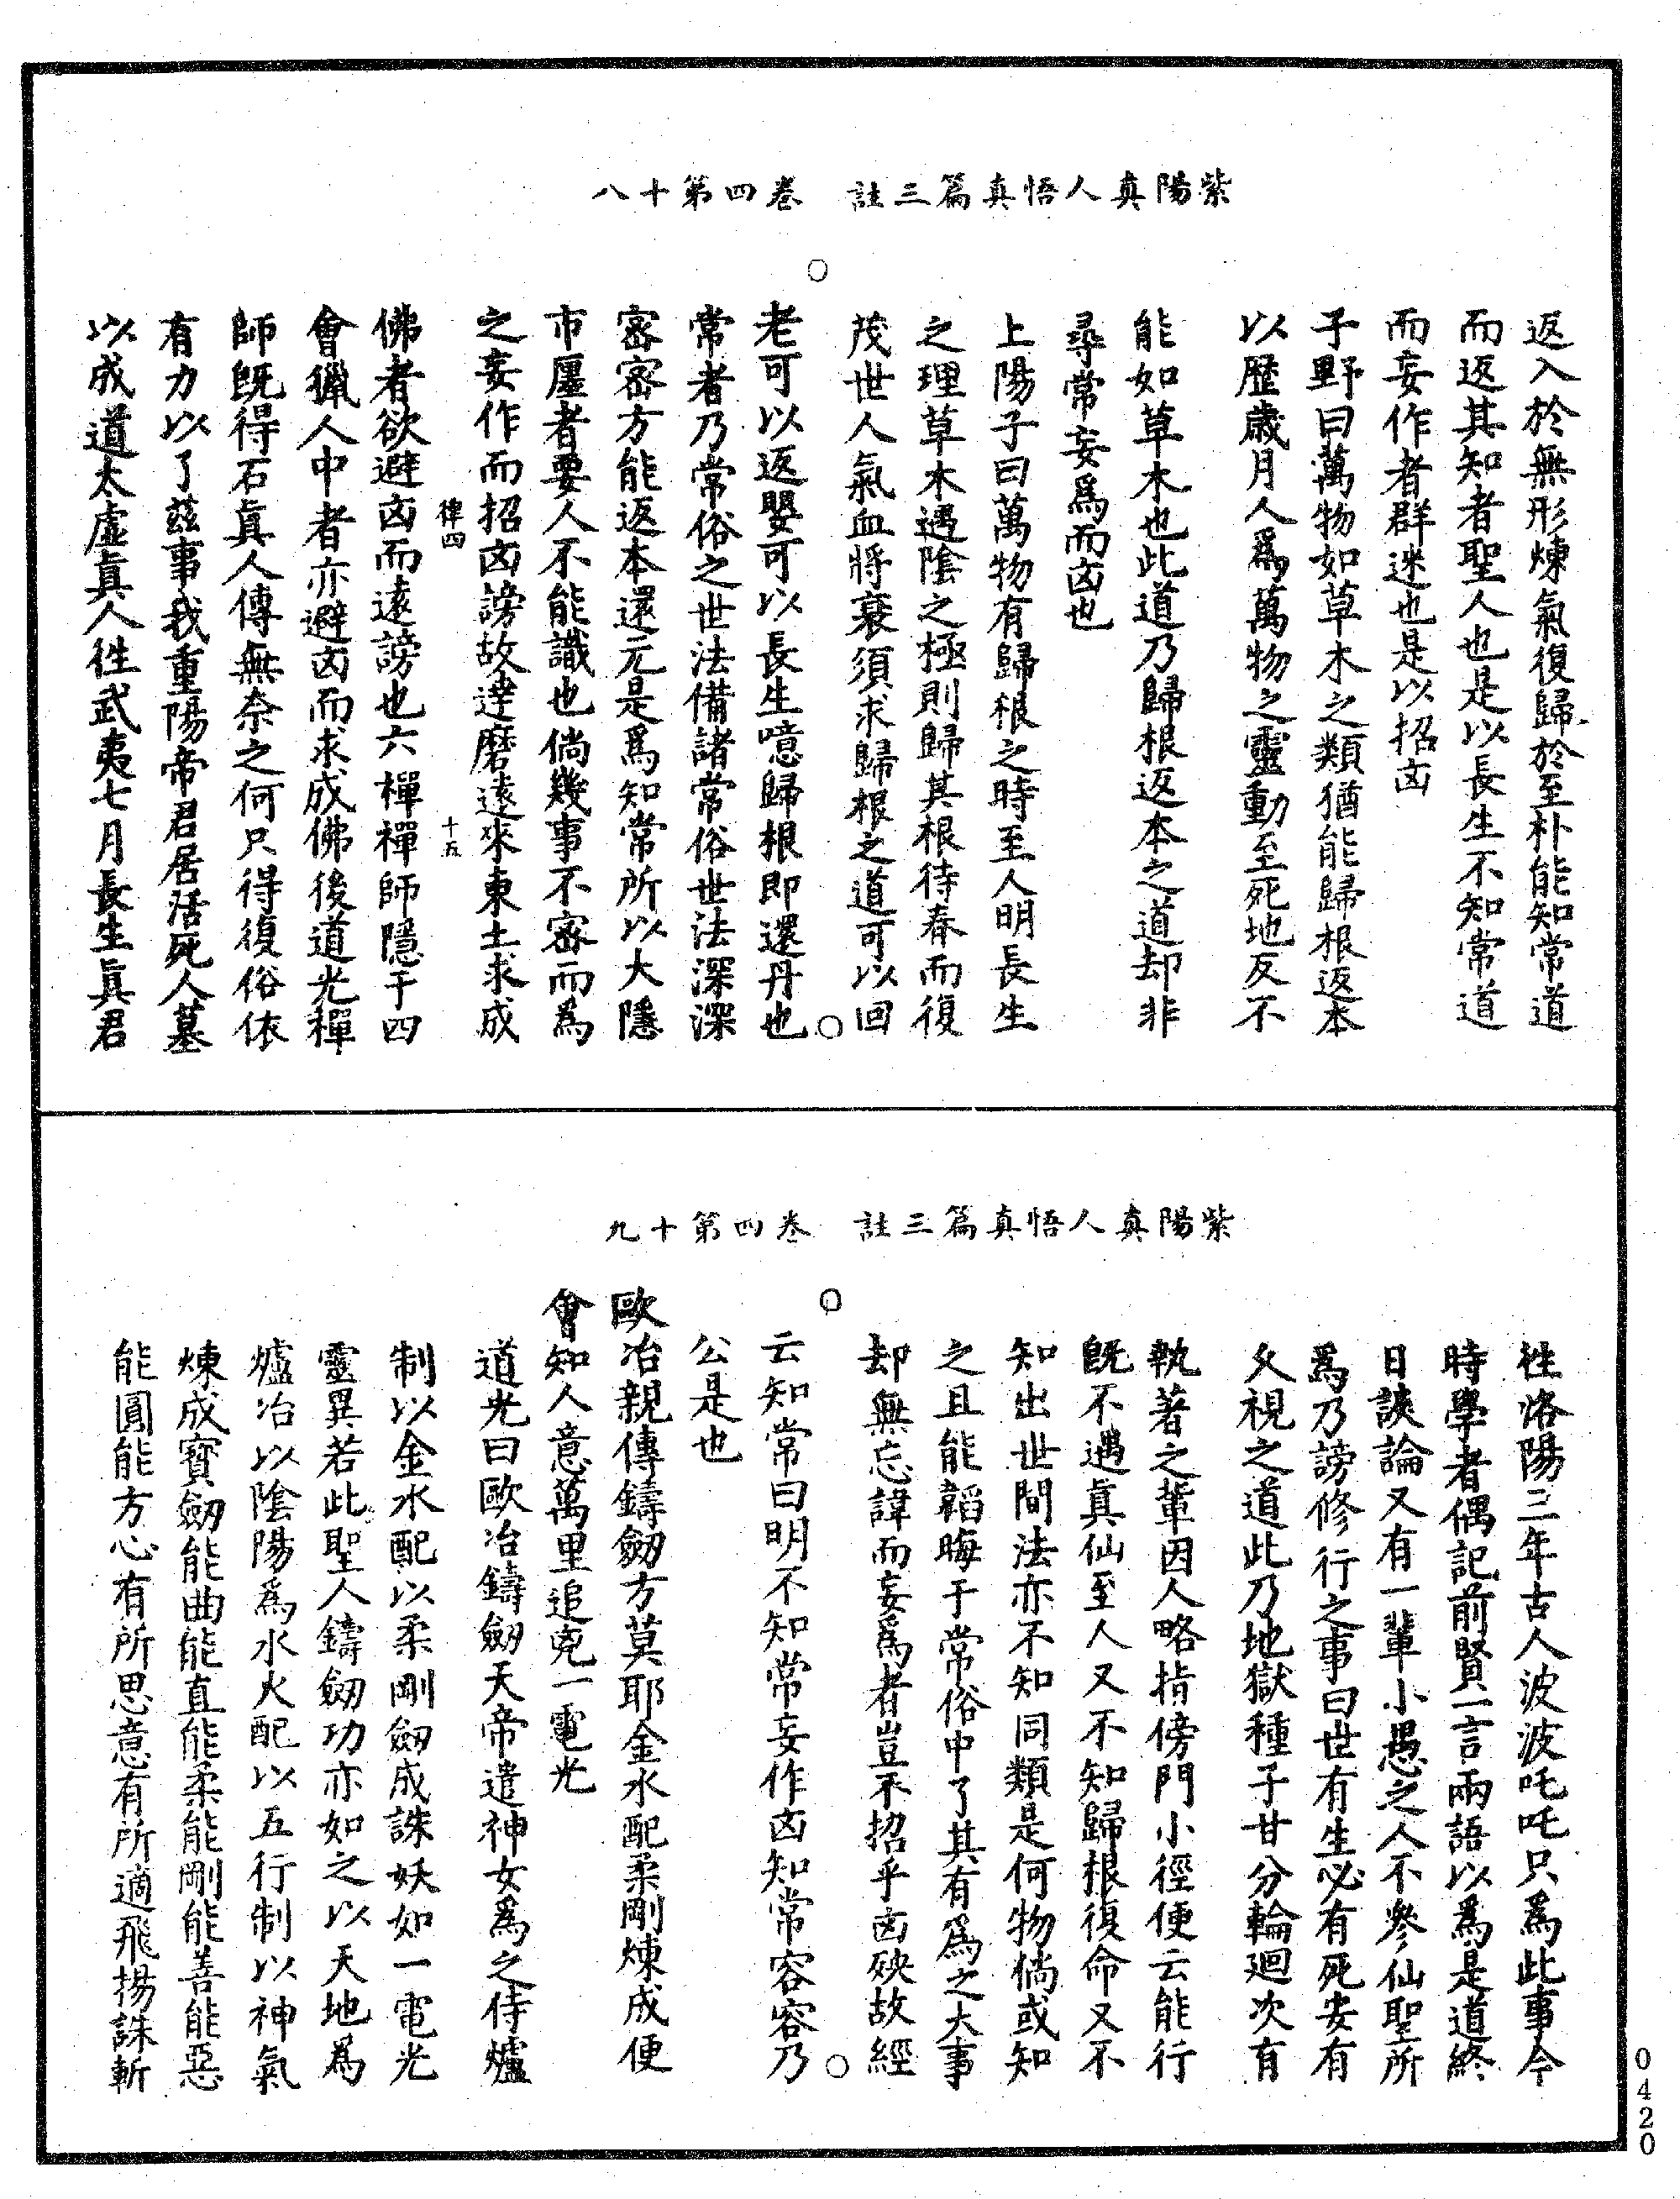 紫陽真人悟真篇三註　卷四第十八
返入於無形煉氣復歸於至朴能知常道
而返其知者聖人也是以長生不知常道
而妄作者群迷也是以招凶
子野曰萬物如草木之類猶能歸根返本
以歷歲月人爲萬物之靈動至死地反不
能如草木也此道乃歸根返本之道却非
尋常妄爲而凶也
上陽子曰萬物有歸根之時至人明長生
之理草木遇陰之極則歸其根待春而復
茂世人氣血將衰須求歸根之道可以回
老可以返嬰可以長生噫歸根即還丹也
常者乃常俗之世法備諸常俗世法深深
密密方能返本還元是爲知常所以大隱
市廛者要人不能識也倘幾事不密而爲
之妄作而招凶謗故達磨遠來東土求成
律四　十五
佛者欲避凶而遠謗也六禪禪師隱于四
會獵人中者亦避凶而求成佛後道光禪
師旣得石眞人傳無奈之何只得復俗依
有力以了兹事我重陽帝君居活死人墓
以成道太虛眞人徃武夷七月長生眞君
紫陽真人悟真篇三註　卷四第十九
徃洛陽三年古人波波吒吒只爲此事今
時學者偶記前賢一言兩語以爲是道終
日談論又有一輩小愚之人不參仙聖所
爲乃謗修行之事曰世有生必有死安有
久視之道此乃地獄種子甘分輪廻次有
執著之輩因人略指傍門小徑便云能行
旣不遇眞仙至人又不知歸根復命又不
知出世間法亦不知同類是何物倘或知
之且能韜晦于常俗中了其有爲之大事
却無忘諱而妄爲者豈不招乎凶殃故經
云知常曰明不知常妄作凶知常容容乃
公是也
歐冶親傳鑄劒方莫耶金水配柔剛煉成便
會知人意萬里追兇一電光
道光曰歐冶鑄劒天帝遣神女爲之侍爐
制以金水配以柔剛劒成誅妖如一電光
靈異若此聖人鑄劒功亦如之以天地爲
爐冶以陰陽爲水火配以五行制以神氣
煉成寳劒能曲能直能柔能剛能善能惡
能圓能方心有所思意有所適飛揚誅斬
0420